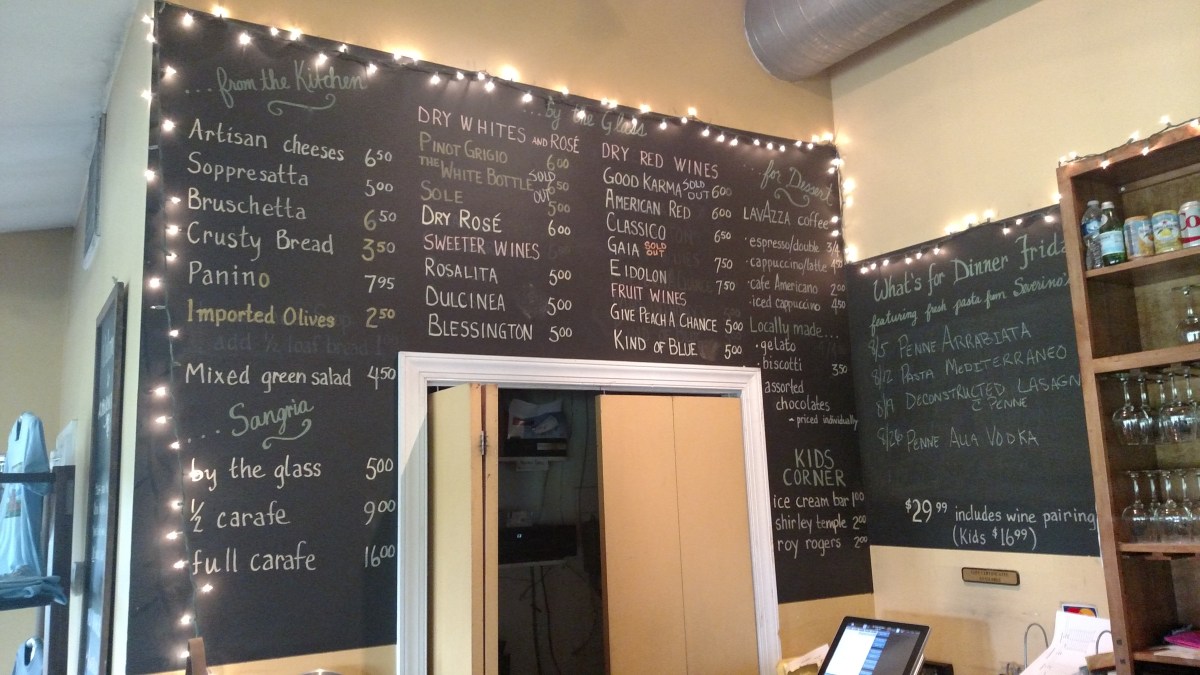 ...from the Kitchen
Artisan cheeses 6 50
Soppresatta 5 00
Bruschetta 6 50
Crusty Bread 3 50
Panino 7 95
Imported Olives 2 50
add ½ loaf bread
Mixed green salad 4 50
...Sangria
by the glass 5 00
½ carafe 9 00
full carafe 16 00
...by the Glass
DRY WHITES AND ROSÉ
PINOT GRIGIO 6 00
THE WHITE BOTTLE SOLD OUT 6 50
SOLE 5 00
DRY ROSÉ 6 00
SWEETER WINES
ROSALITA 5 00
DULCINEA 5 00
BLESSINGTON 5 00
DRY RED WINES
GOOD KARMA SOLD OUT 6 00
AMERICAN RED 6 00
CLASSICO 6 50
GAIA SOLD OUT 7 50
EIDOLON 7 50
FRUIT WINES
GIVE PEACH A CHANCE 5 00
KIND OF BLUE 5 00
...for Dessert
LAVAZZA coffee
·espresso/double 3/4
·cappuccino/latte 4 50
·cafe Americano 2 00
·iced cappuccino 4 50
Locally made...
·gelato
·biscotti 3 50
assorted
chocolates
- priced individually
KIDS
CORNER
ice cream bar 1 00
shirley temple 2 00
roy rogers 2 00
What's for Dinner Frida
featuring fresh pasta from Severino's
8/5 PENNE ARRABIATA
8/12 PASTA MEDITERRANEO
8/19 DECONSTRUCTED LASAGN
C PENNE
8/26 PENNE ALLA VODKA
$29 99 includes wine pairing
(Kids $16 99)